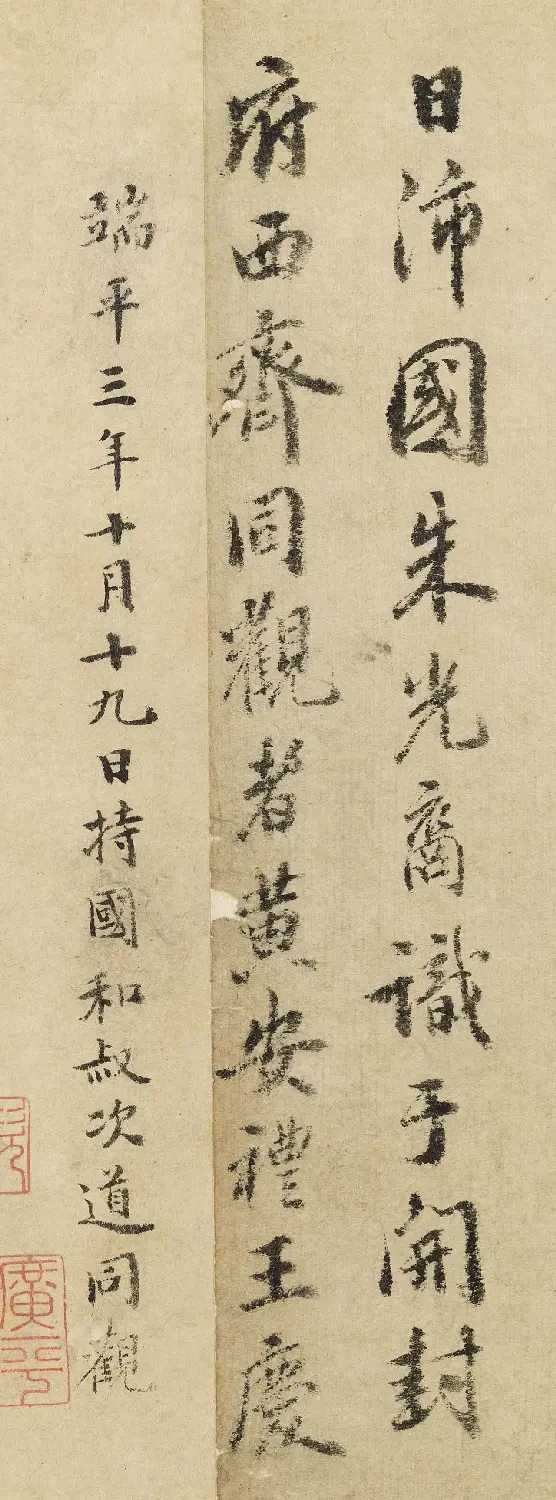 日沛國朱光裔識于開封
府西齋同觀者黃安禮王慶
端平三年十月十九日持國和叔次道同觀
廣平